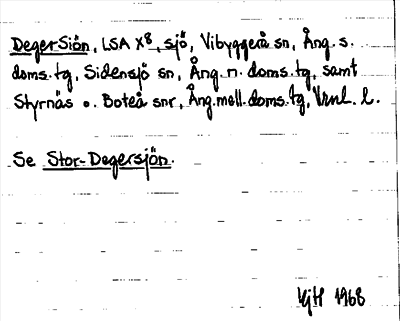 DegerSiön, LSA X8, sjö, Vibyggerå sn, Ång. s.
doms. tg, Sidensjö sn, Ång. n. doms. tg, samt
Styrnäs o. Boteå snr, Ång. mell. doms. tg, Vrnl. l.
Se Stor-Degersjön.
VjH 1968